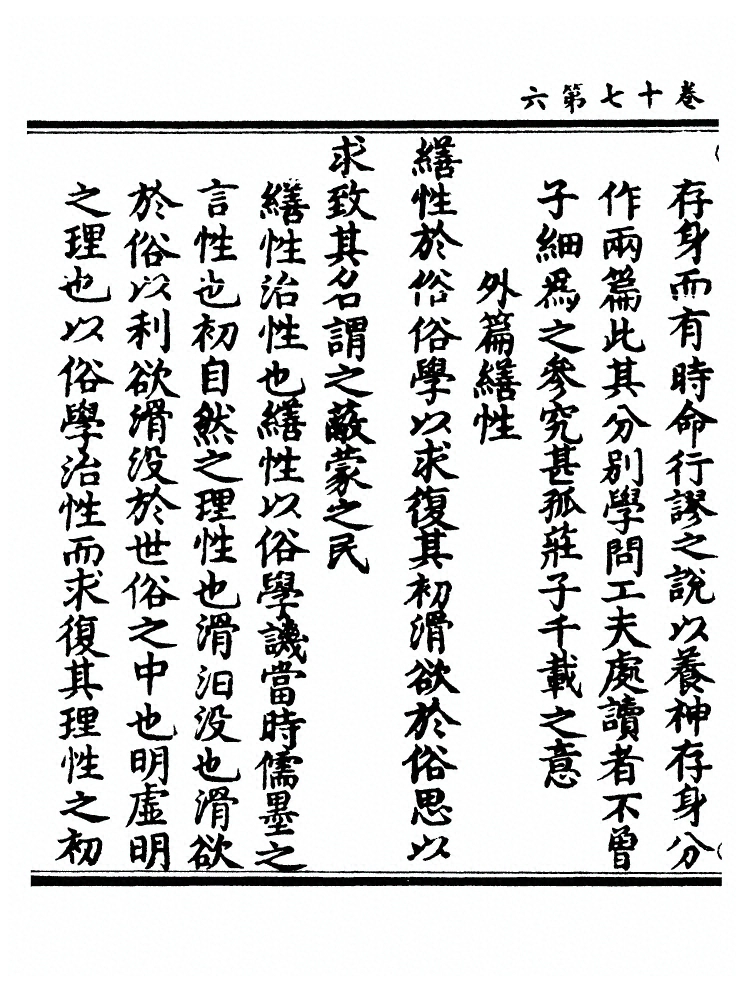 卷十七第六
存身而有時命行謬之說以養神存身分
作兩篇此其分別學問工夫處讀者不曾
子細爲之參究甚孤莊子千載之意
外篇繕性
繕性於俗俗學以求復其初滑欲於俗思以
求致其名謂之蔽蒙之民
繕性治性也繕性以俗學譏當時儒墨之
言性也初自然之理性也滑汩没也滑欲
於俗以利欲滑没於世俗之中也明虛明
之理也以俗學治性而求復其理性之初